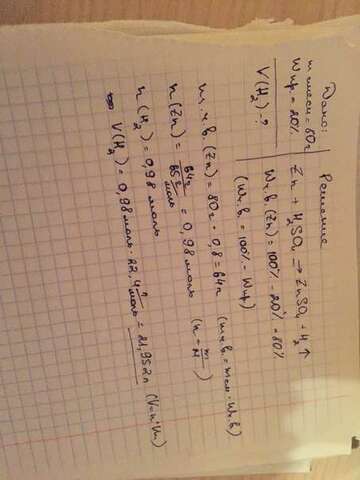 Дано:
m смеси = 80г
W пр. = 20%
V(H₂) - ?
Решение
Zn + H₂SO₄ → ZnSO₄ + H₂↑
Wч.в. (Zn) = 100% - 20% = 80%
(Wч.в. = 100% - Wпр)
mч.в. (Zn) = 80г · 0,8 = 64г (mч.в. = mсм · Wч.в)
n(Zn) = 64г / 65 г/моль = 0,98 моль (n = m/M)
n(H₂) = 0,98 моль
V(H₂) = 0,98 моль · 22,4 л/моль = 21,952л (V=n·Vm)